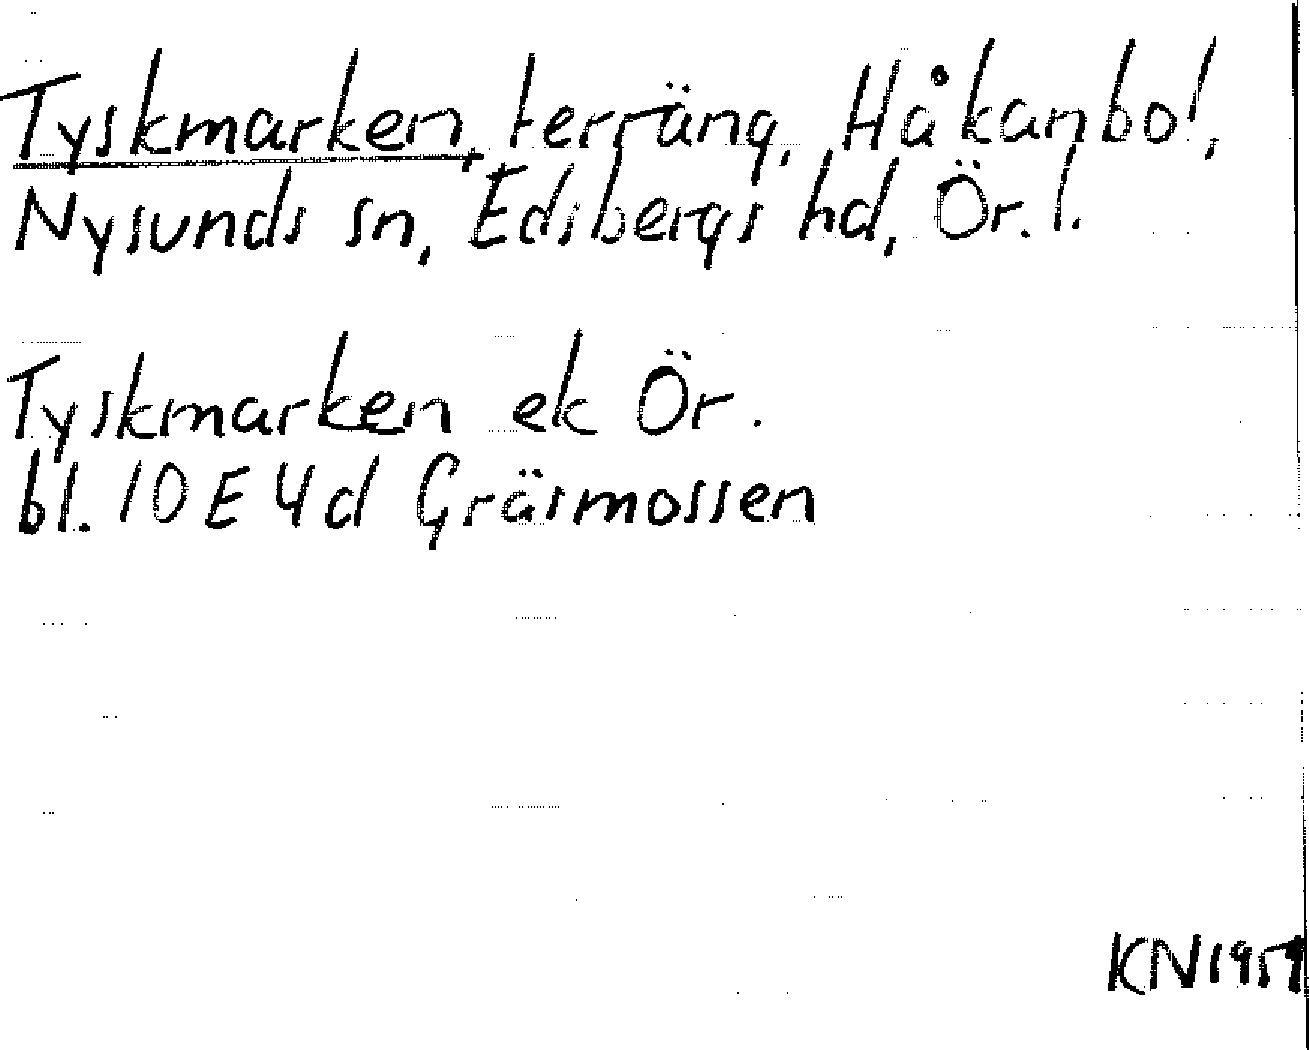 Tyskmarken, terräng, Håkanbol,
Nysunds sn, Edsbergs hd, Ör. l.
Tyskmarken ek Ör.
bl. 10E 4d Gräsmossen